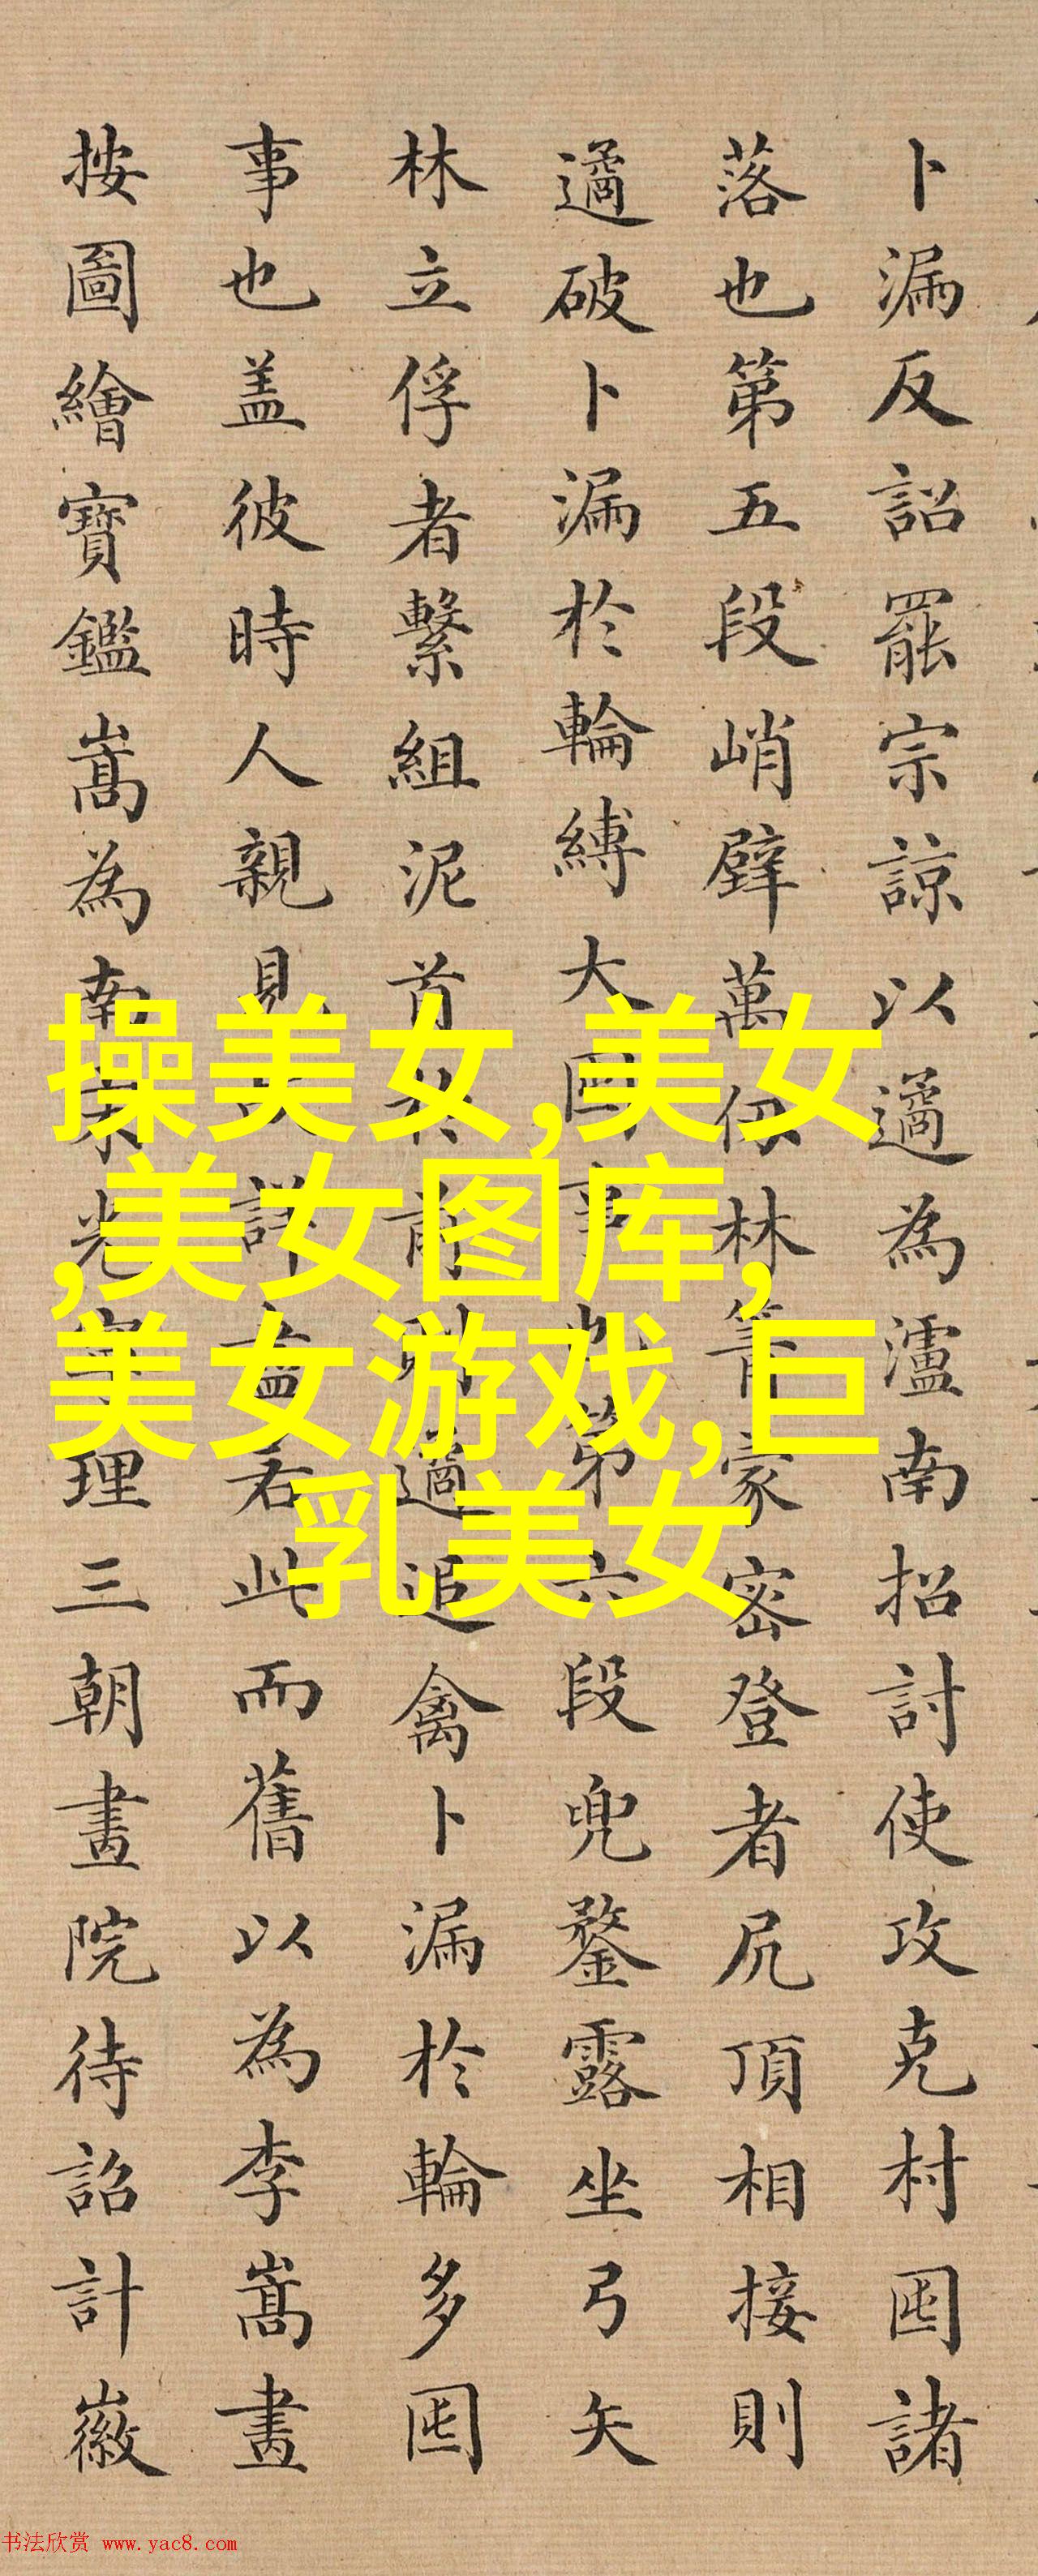 卜漏反詔罷宗諒以遹為瀘南招討使攻克村囤諸
落也第五段峭壁萬仞林箐蒙密登者尻頂相接則
遹破卜漏於輪縛大囤事也第六段兜鍪露坐弓矢
林立俘者繫組泥首於前則遹追禽卜漏於輪多囤
事也盖彼時人親見其詳盖若此而舊以為李嵩畫
按圖繪寶鑑嵩為南宋光寧理三朝畫院待詔計徽
操美女,美女
,美女图库,
美女游戏,巨
乳美女
书法欣赏 www.yac8.com